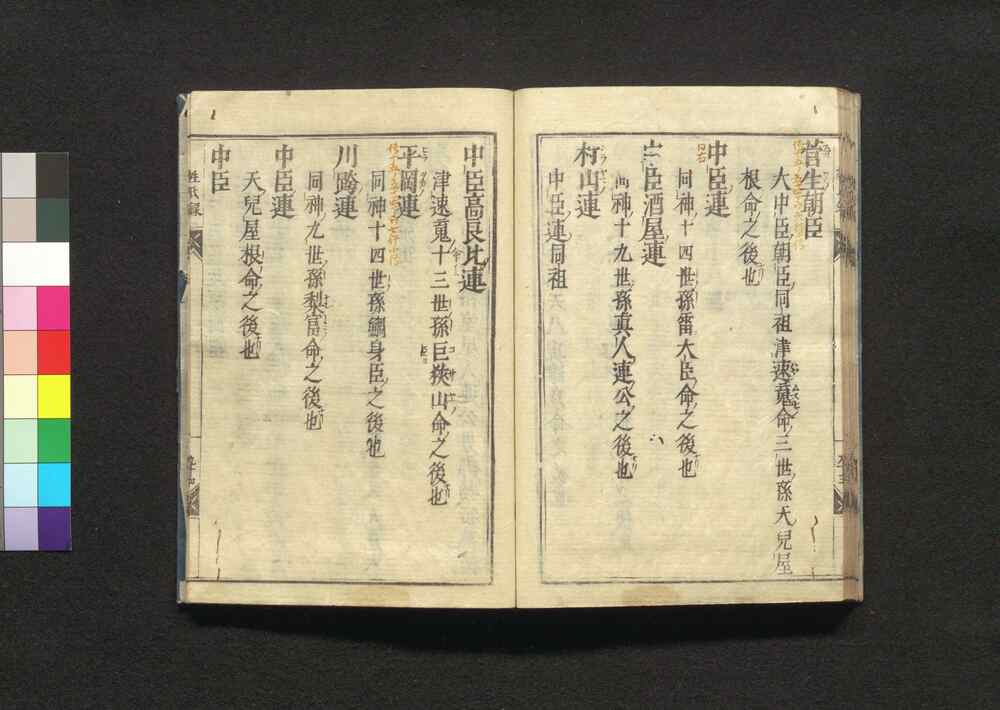 菅生朝臣
大中臣朝臣同祖津速䰟命三世孫天兒屋
根命之後也
中臣連
同神十四世孫雷大臣命之後也
中臣酒屋連
同神十九世孫真人連公之後也
村山連
中臣連同祖
中臣高良比連
津速䰟十三世孫巨狹山命之後也
平岡連
同神十四世孫鯛身臣之後也
川跨連
同神九世孫梨富命之後也
中臣連
天兒屋根命之後也
中臣
姓氏録